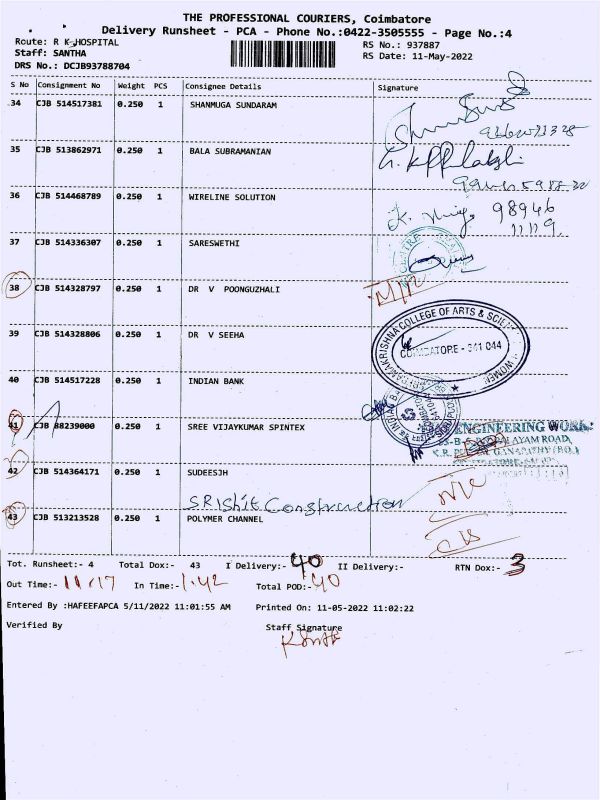 THE PROFESSIONAL COURIERS, Coimbatore
Delivery Runsheet - PCA - Phone No.:0422-3505555 - Page No.:4
Route: R K HOSPITAL
RS No.: 937887
Staff: SANTHA
RS Date: 11-May-2022
DRS No.: DCJB93788704
S No Consignment No Weight PCS Consignee Details Signature
34 CJB 514517381 0.250 1 SHANMUGA SUNDARAM
35 CJB 513862971 0.250 1 BALA SUBRAMANIAN
36 CJB 514468789 0.250 1 WIRELINE SOLUTION
98946
11119
37 CJB 514336307 0.250 1 SARESWETHI
38 CJB 514328797 0.250 1 DR V POONGUZHALI
39 CJB 514328806 0.250 1 DR V SEEHA
COIMBATORE - 641 044
40 CJB 514517228 0.250 1 INDIAN BANK
41 CJB 88239000 0.250 1 SREE VIJAYKUMAR SPINTEX
ENGINEERING WORK
42 CJB 514364171 0.250 1 SUDEESJH
SRIshit Construction
43 CJB 513213528 0.250 1 POLYMER CHANNEL
Tot. Runsheet:- 4 Total Dox:- 43 I Delivery:- 40 II Delivery:- RTN Dox:- 3
Out Time:- 11.17 In Time:- 1.42 Total POD:- 40
Entered By :HAFEEFAPCA 5/11/2022 11:01:55 AM Printed On: 11-05-2022 11:02:22
Verified By Staff Signature